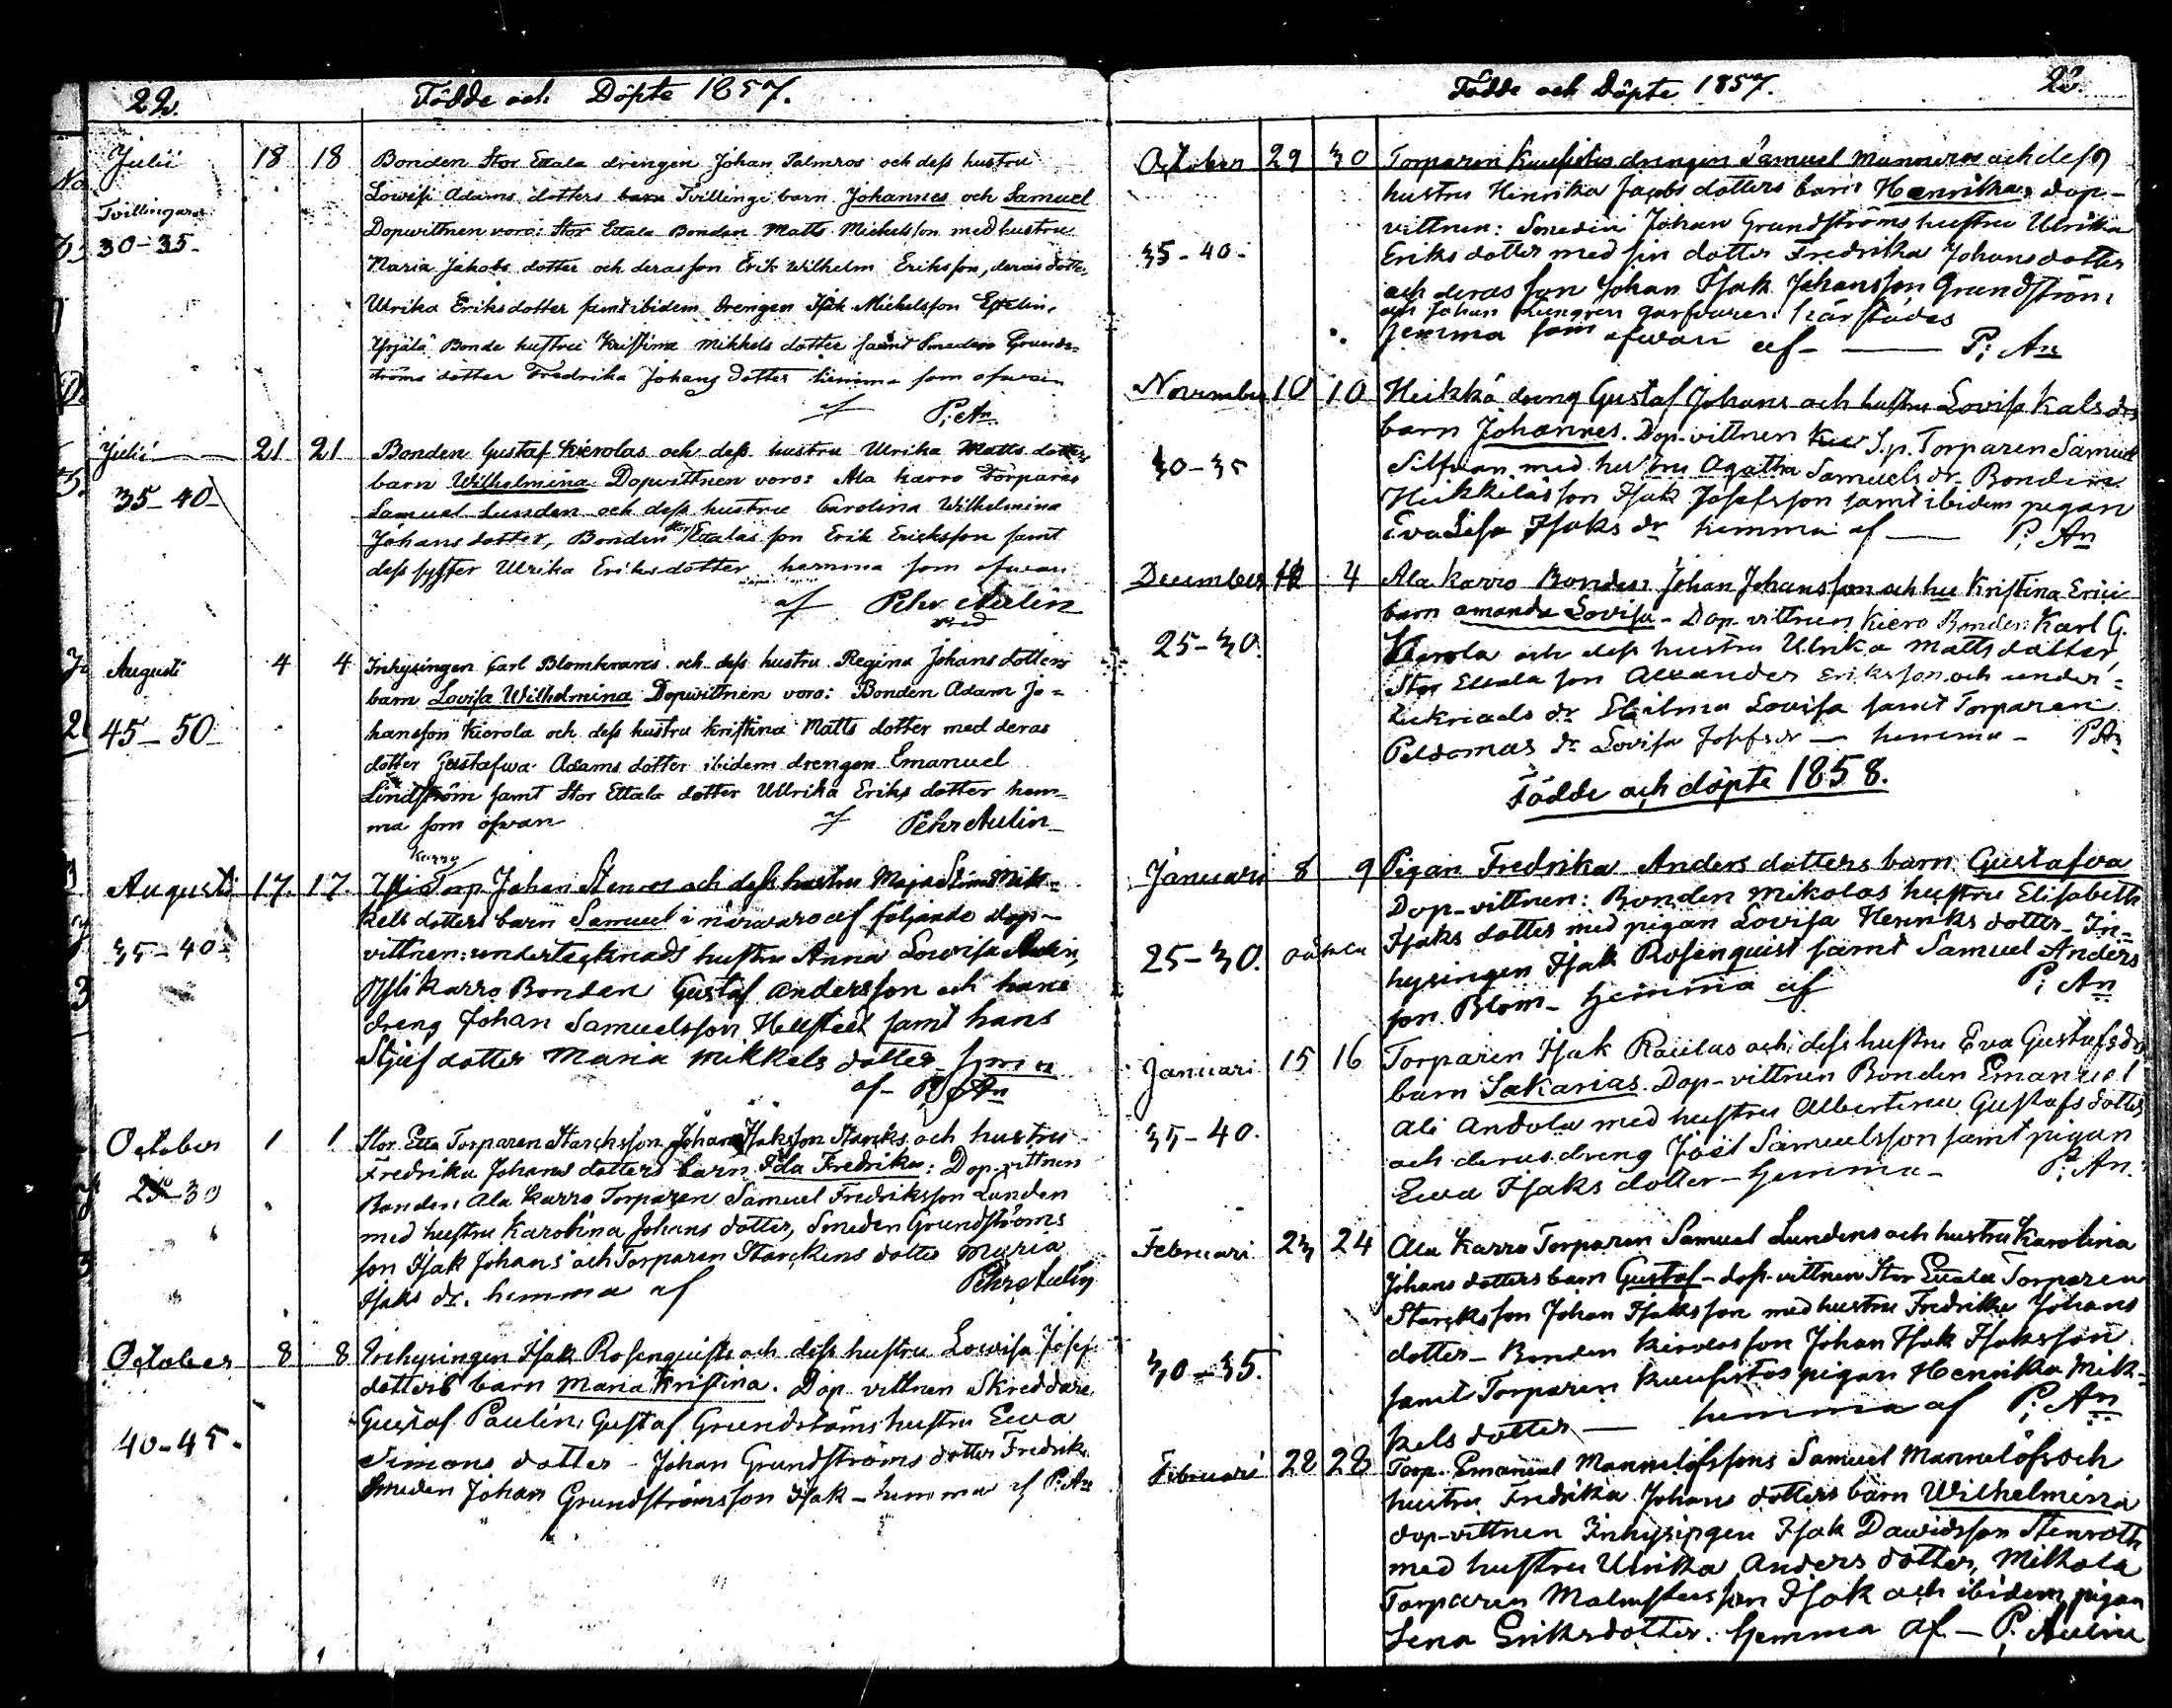 22.
Födde och Döpte 1857.
Julii 18 18 Bonden Stor Ettala drengen Johan Palmros och dess hustru
Lowisa Adams dotters barn Tvillinge barn Johannes och Samuel
Tvillingarne
Dopwittnen voro: Stor Ettala Bonden Matts Michelsson med hustru
30-35-
Maria Jakobs dotter och deras son Erik Wilhelm Eriksson, deras dotter
Ulrika Eriksdotter samt ibidem drengen Isak Michelsson
Bonde hustru Kristina Mikkels dotter samt Smeden Grund-
ströms dotter Fredrika Johans dotter hemma som ofwan
af P. An.
Julii 21 21 Bonden Gustaf Kierolas och dess hustru Ulrika Matts dotters
barn Wilhelmina Dopwittnen voro: Ala Karro Torparen
35-40-
Samuel Lunden och dess hustru Carolina Wilhelmina
Johans dotter, Bonden Stor Ettalas son Erik Ericksson samt
dess syster Ulrika Eriksdotter hemma som ofwan
af Pehr Aulin
Augusti 4 4 Inhysingen Carl Blomkvarns och dess hustru Regina Johans dotters
barn Lovisa Wilhelmina Dopwittnen voro: Bonden Adam Jo=
45-50-
hansson Kierola och dess hustru Kristina Matts dotter med deras
dotter Gustafwa Adams dotter ibidem drengen Emanuel
Lindström samt Stor Ettala dotter Ullrika Eriks dotter hem=
ma som ofwan af Pehr Aulin
Karro
Augusti 17. 17. Torp. Johan Stenros och dess hustru Maja Stina Mik=
kels dotters barn Samuel i närwaro af följande dop-
35-40-
vittnen: undertecknads hustru Anna Lowisa Aulin,
Karro Bonden Gustaf Andersson och hans
dreng Johan Samuelsson samt hans
Stjuf dotter Maria Mikkels dotter
af P. An
October 1 1 Stor Etta Torparen Starcksson Johan Isaksson Starcks och hustru
Fredrika Johans dotters barn Ida Fredrika: Dop-vittnen
25-30
Bonden Ala Karro Torparen Samuel Fredriksson Lunden
med hustru Karolina Johans dotter, Smeden Grundströms
son Isak Johans och Torparen Starckens dotter Maria
Isaks dr. hemma af Pehr Aulin
October 8 8 Inhysingen Isak Rosenquists och dess hustru Lowisa Josef
dotters barn Maria Kristina. Dop vittnen Skreddare
Gustaf Paulin, Gustaf Grundströms hustru Ewa
40-45.
Simons dotter - Johan Grundströms dotter Fredrik.
Smeden Johan Grundströms son Isak - hemma af P. An
Födde och Döpte 1857.
23.
October 29 30 Torparen drengen Samuel och dess
hustru Henrika Jacobs dotters barn Henrika, dop-
vittnen: Smeden Johan Grundströms hustru Ulrika
35-40-
Eriks dotter med sin dotter Fredrika Johans dotter
och deras son Johan Isak Johansson Grundström
och Johan Lungren härstädes
hemma som ofwan af P. An
November 10 10 Heikkä dreng Gustaf Johans och hustru Lovisa Kals drs
barn Johannes. Dop-vittnen Torparen Samuel
30-35
Silfvan med hustru Agatha Samuels dr. Bonden
Heikkiläs son Isak Josefsson samt ibidem pigan
Eva Lisa Isaks dr hemma af P. An
December 4 Ala Karro Bonden Johan Johansson och hu Kristina Erici
barn Amanda Lovisa - Dop-vittnen Kiero Bonden Karl G.
25-30.
Kierola och dess hustru Ulrika Mattsdotter,
Stor Ettala son Alexander Eriksson och under=
teknads dr Lovisa samt Torparen
Peldomas dr Lovisa Josefs dr - hemma - P. An
Födde och döpte 1858.
Januari 8 9 Pigan Fredrika Anders dotters barn Gustafva
Dop-vittnen: Bonden Mikolas hustru Elisabeth
25-30. oäkta
Isaks dotter med pigan Lovisa Henriks dotter - In=
hysingen Isak Rosenquist samt Samuel Anders
son Blom - hemma af P. An
Januari 15 16 Torparen Isak Raulas och dess hustru Eva Gustafs drs
barn Sakarias. Dop-vittnen Bonden Emanuel
35-40.
Ali Andola med hustru Albertina Gustafs dotter
och deras dreng Joel Samuelsson samt pigan
Ewa Isaks dotter - hemma - P. An.
Februari 23 24 Ala Karro Torparen Samuel Lundens och hustru Karolina
Johans dotters barn Gustaf - dop-vittnen Stor Ettala Torparen
Starcksson Johan Isaksson med hustru Fredrika Johans
dotter - Bonden Kirolas son Johan Isak Isaksson
30-35.
samt Torparen pigan Henrika Mik=
kels dotter hemma af P. An
Februari 28 28 Torp. Emanuel Mannelöfs sons Samuel Mannelöfs och
hustru Fredrika Johans dotters barn Wilhelmina
dop-vittnen Inhysingen Isak Dawidsson Stenroth
med hustru Ulrika Anders dotter, Mikola
Torparen Malmstens son Isak och ibidem pigan
Lena Eriksdotter. hemma af - P. Aulin